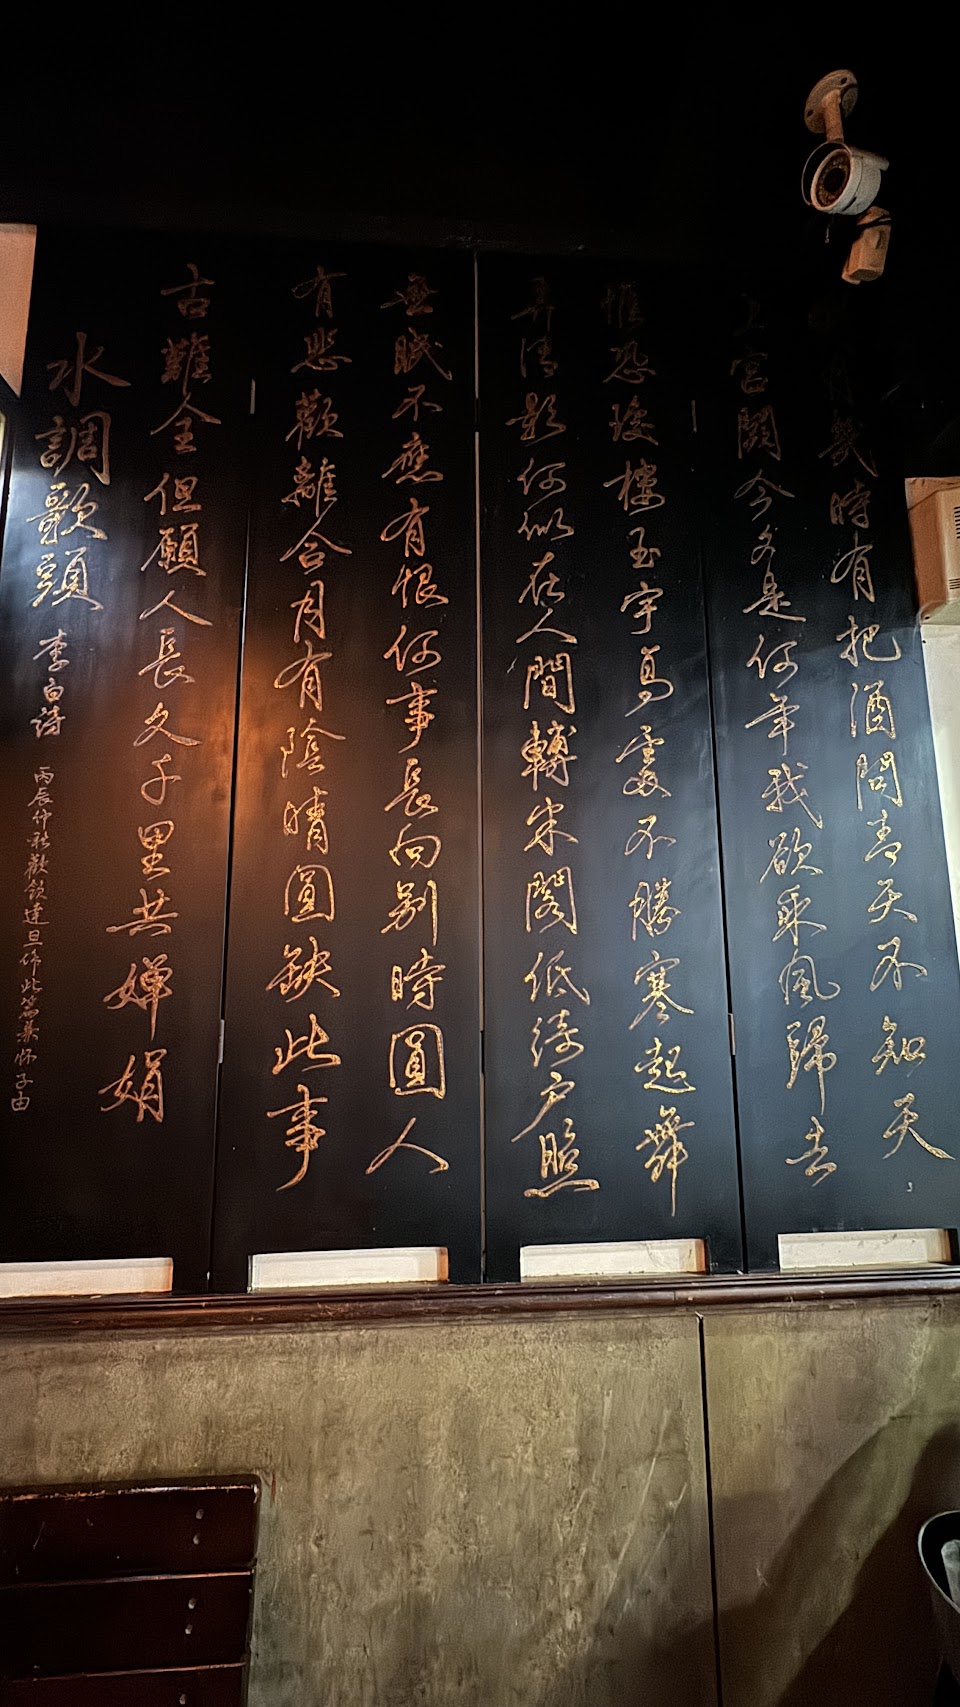 月幾時有把酒問青天不知天
上宮闕今夕是何年我欲乘風歸去
惟恐瓊樓玉宇高處不勝寒起舞
弄清影何似在人間轉朱閣低綺戶照
無眠不應有恨何事長向別時圓人
有悲歡離合月有陰晴圓缺此事
古難全但願人長久千里共嬋娟
水調歌頭 李白詩 丙辰仲秋歡飲達旦作此篇兼懷子由